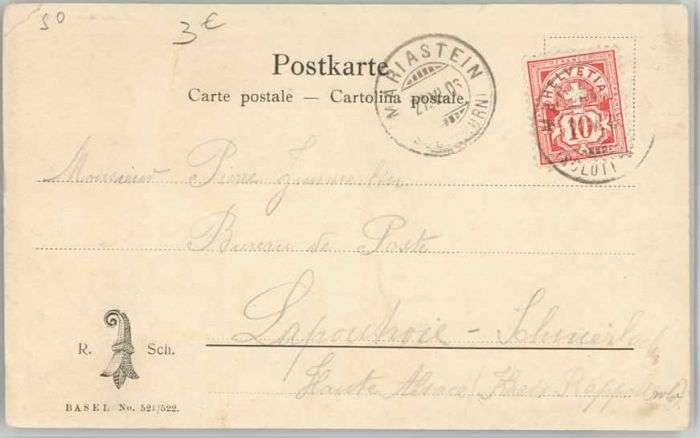 50
3€
Postkarte
Carte postale — Cartolina postale
MARIASTEIN
HELVETIA
10
Monsieur Pierre Zimmerlin
Bureau de Poste
Lapoutroie - Schnierlach
Haute Alsace (Kreis Rappoltsw.)
R. Sch.
BASEL No. 521/522.